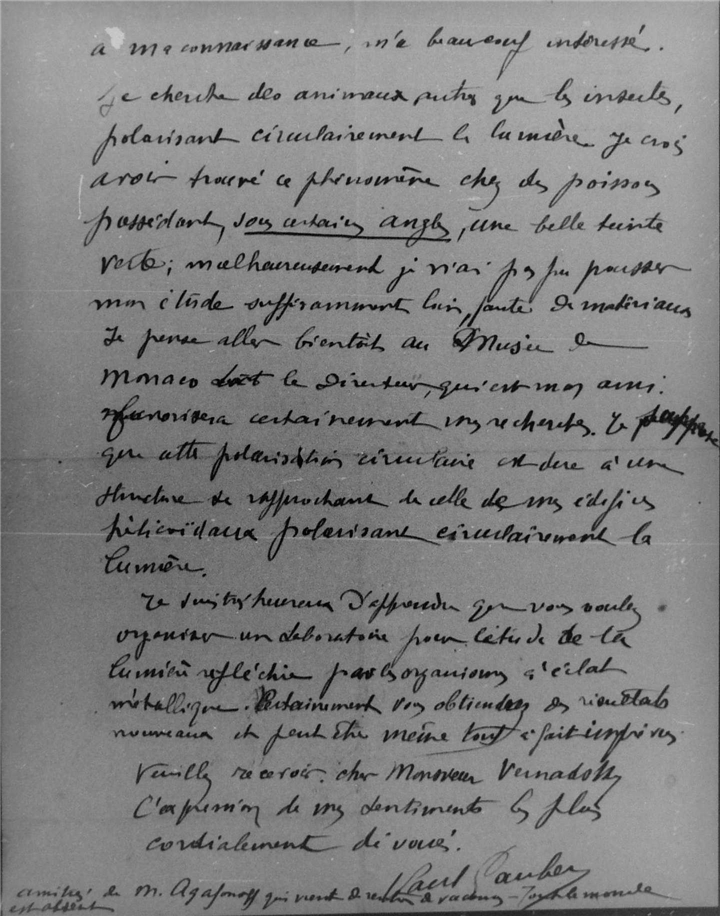 à ma connaissance, m'a beaucoup intéressé.
Je cherche des animaux, autres que les insectes,
polarisant circulairement la lumière. Je crois
avoir trouvé ce phénomène chez des poissons
possédant, sous certains angles, une belle teinte
verte; malheureusement je n'ai pas pu pousser
mon étude suffisamment loin, faute de matériaux
Je pense aller bientôt au Musée de
Monaco dont le Directeur, qui est mon ami.
favorisera certainement mes recherches. Je suppose
que cette polarisation circulaire est due à une
structure se rapprochant de celle de mes édifices
hélicoïdaux polarisant circulairement la
lumière.
Je suis très heureux d'apprendre que vous voulez
organiser un Laboratoire pour l'étude de la
lumière réfléchie par les organismes à éclat
métallique. Certainement vous obtiendrez des résultats
nouveaux et peut être même tout à fait imprévus.
Veuillez recevoir, cher Monsieur Vernadsky
l'expression de mes sentiments les plus
cordialement dévoués.
Paul Gaubert
amitiés de M. Agafonoff qui vient de rentrer de vacances - Tout le monde
est absent